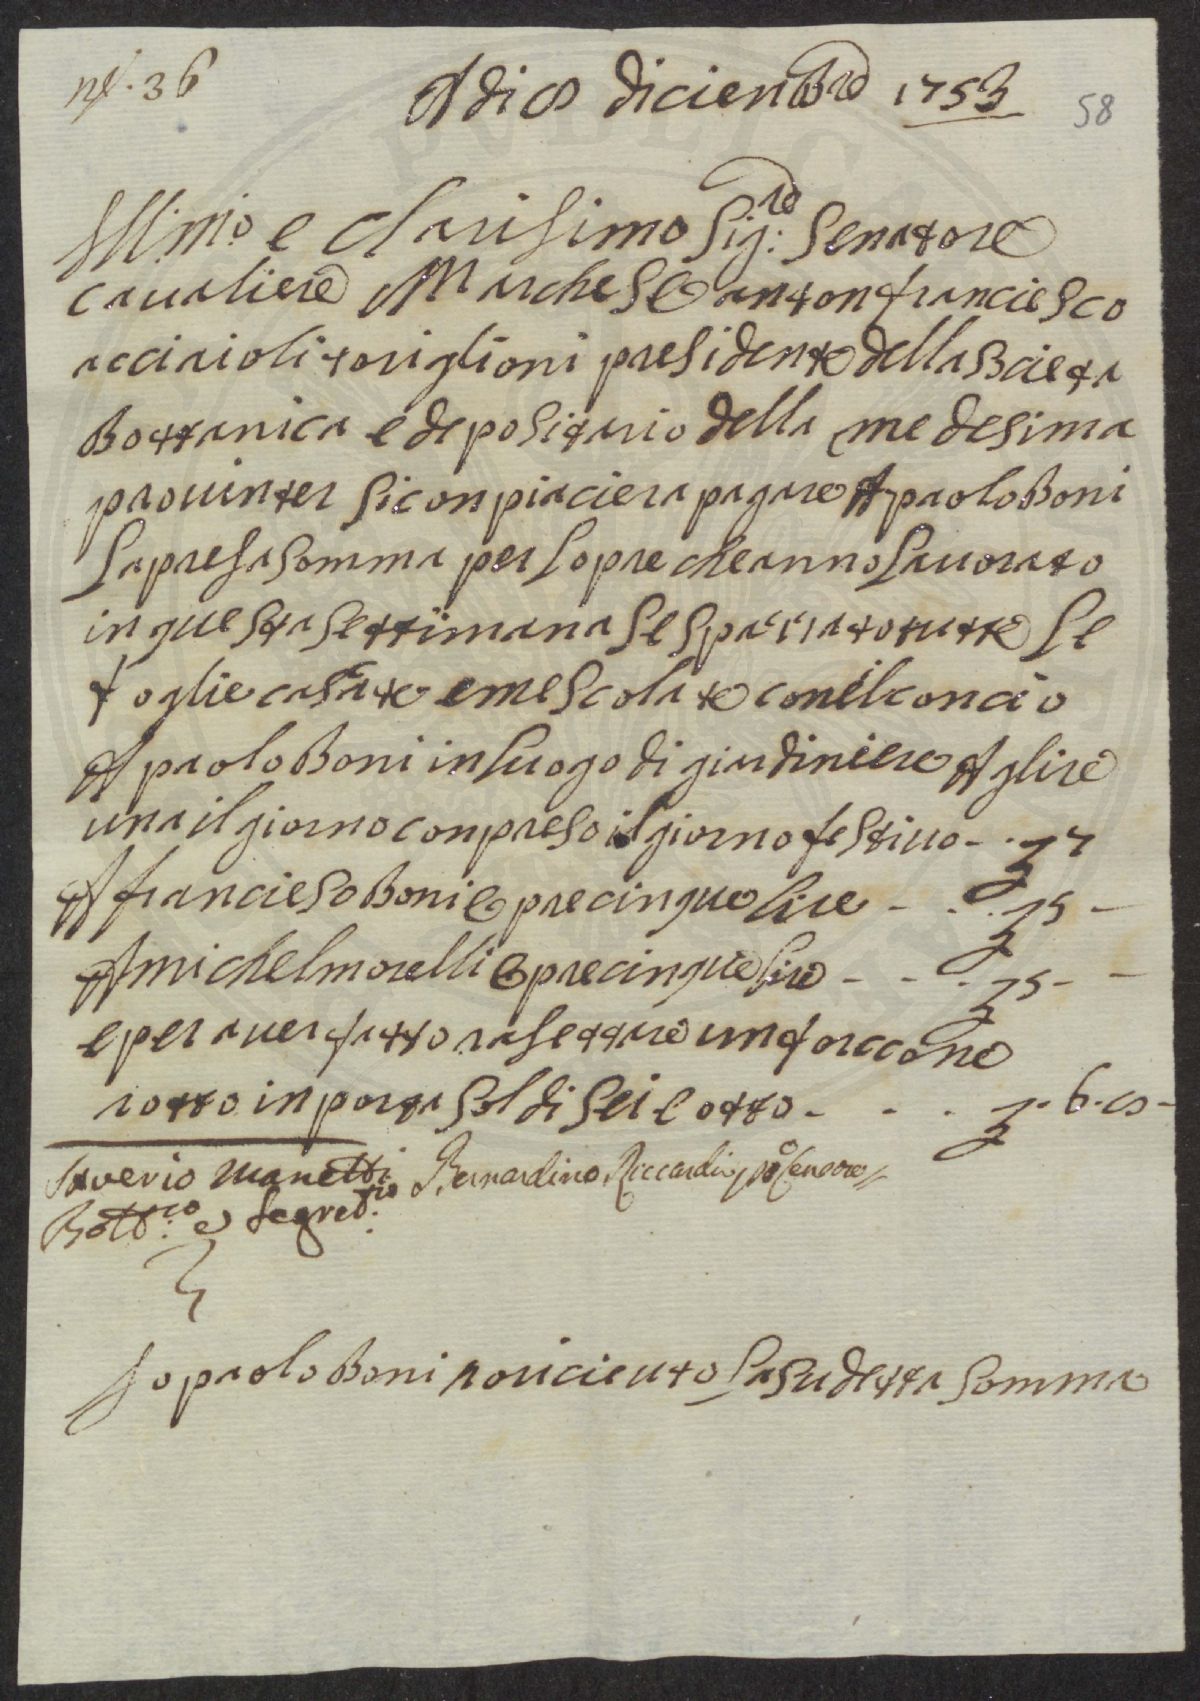 n.o 36
A di 8 diciembre 1753
58
Ill.mo e clarisimo Sig:re Senatore
cavaliere Marchese anton franciesco
acciaioli toriglioni presidente della societa
Bottanica e depositario della medesima
provinter si conpiaciera pagare A paolo Boni
la presa somma per l opre che anno lavorato
in questa settimana se spaciato tutte le
foglie casate e mescolate con il concio
A paolo Boni in luogo di giardiniere A glire
una il giorno conpreso il giorno festivo - . £ 7
A franciesco Boni e pre cinque lire - . . £ 5 -
A michel morelli e pre cinque lire - - . £ 5 - -
e per aver fatto rasettare un forccone
rotto inporta soldi sei e otto - - . £ . 6 . 8 -
Saverio Manetti
Bott.co e Segret.rio
Bernardino Riccardi p.o Censore
Io paolo Boni o riciauto la sudetta somma